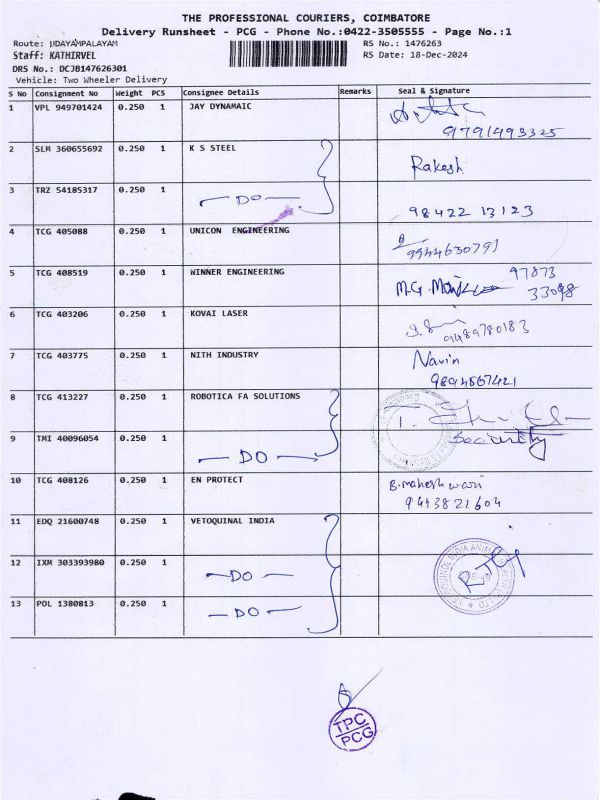 THE PROFESSIONAL COURIERS, COIMBATORE
Delivery Runsheet - PCG - Phone No.:0422-3505555 - Page No.:1
Route: UDAYAMPALAYAM
RS No.: 1476263
Staff: KATHIRVEL
RS Date: 18-Dec-2024
DRS No.: DCJB147626301
Vehicle: Two Wheeler Delivery
S No Consignment No Weight PCS Consignee Details Remarks Seal & Signature
1 VPL 949701424 0.250 1 JAY DYNAMAIC
9791493325
2 SLM 360655692 0.250 1 K S STEEL
Rakesh
3 TRZ 54185317 0.250 1 — DO —
98422 13123
4 TCG 405088 0.250 1 UNICON ENGINEERING
9944630791
5 TCG 408519 0.250 1 WINNER ENGINEERING 97873
M.G. 33098
6 TCG 403206 0.250 1 KOVAI LASER
9489780183
7 TCG 403775 0.250 1 NITH INDUSTRY Navin
9894567421
8 TCG 413227 0.250 1 ROBOTICA FA SOLUTIONS
Security
9 TMI 40096054 0.250 1
— DO —
10 TCG 408126 0.250 1 EN PROTECT B.maheshwari
9443821604
11 EDQ 21600748 0.250 1 VETOQUINAL INDIA
12 IXM 303393980 0.250 1
— DO —
13 POL 1380813 0.250 1 — DO —
TPC
PCG